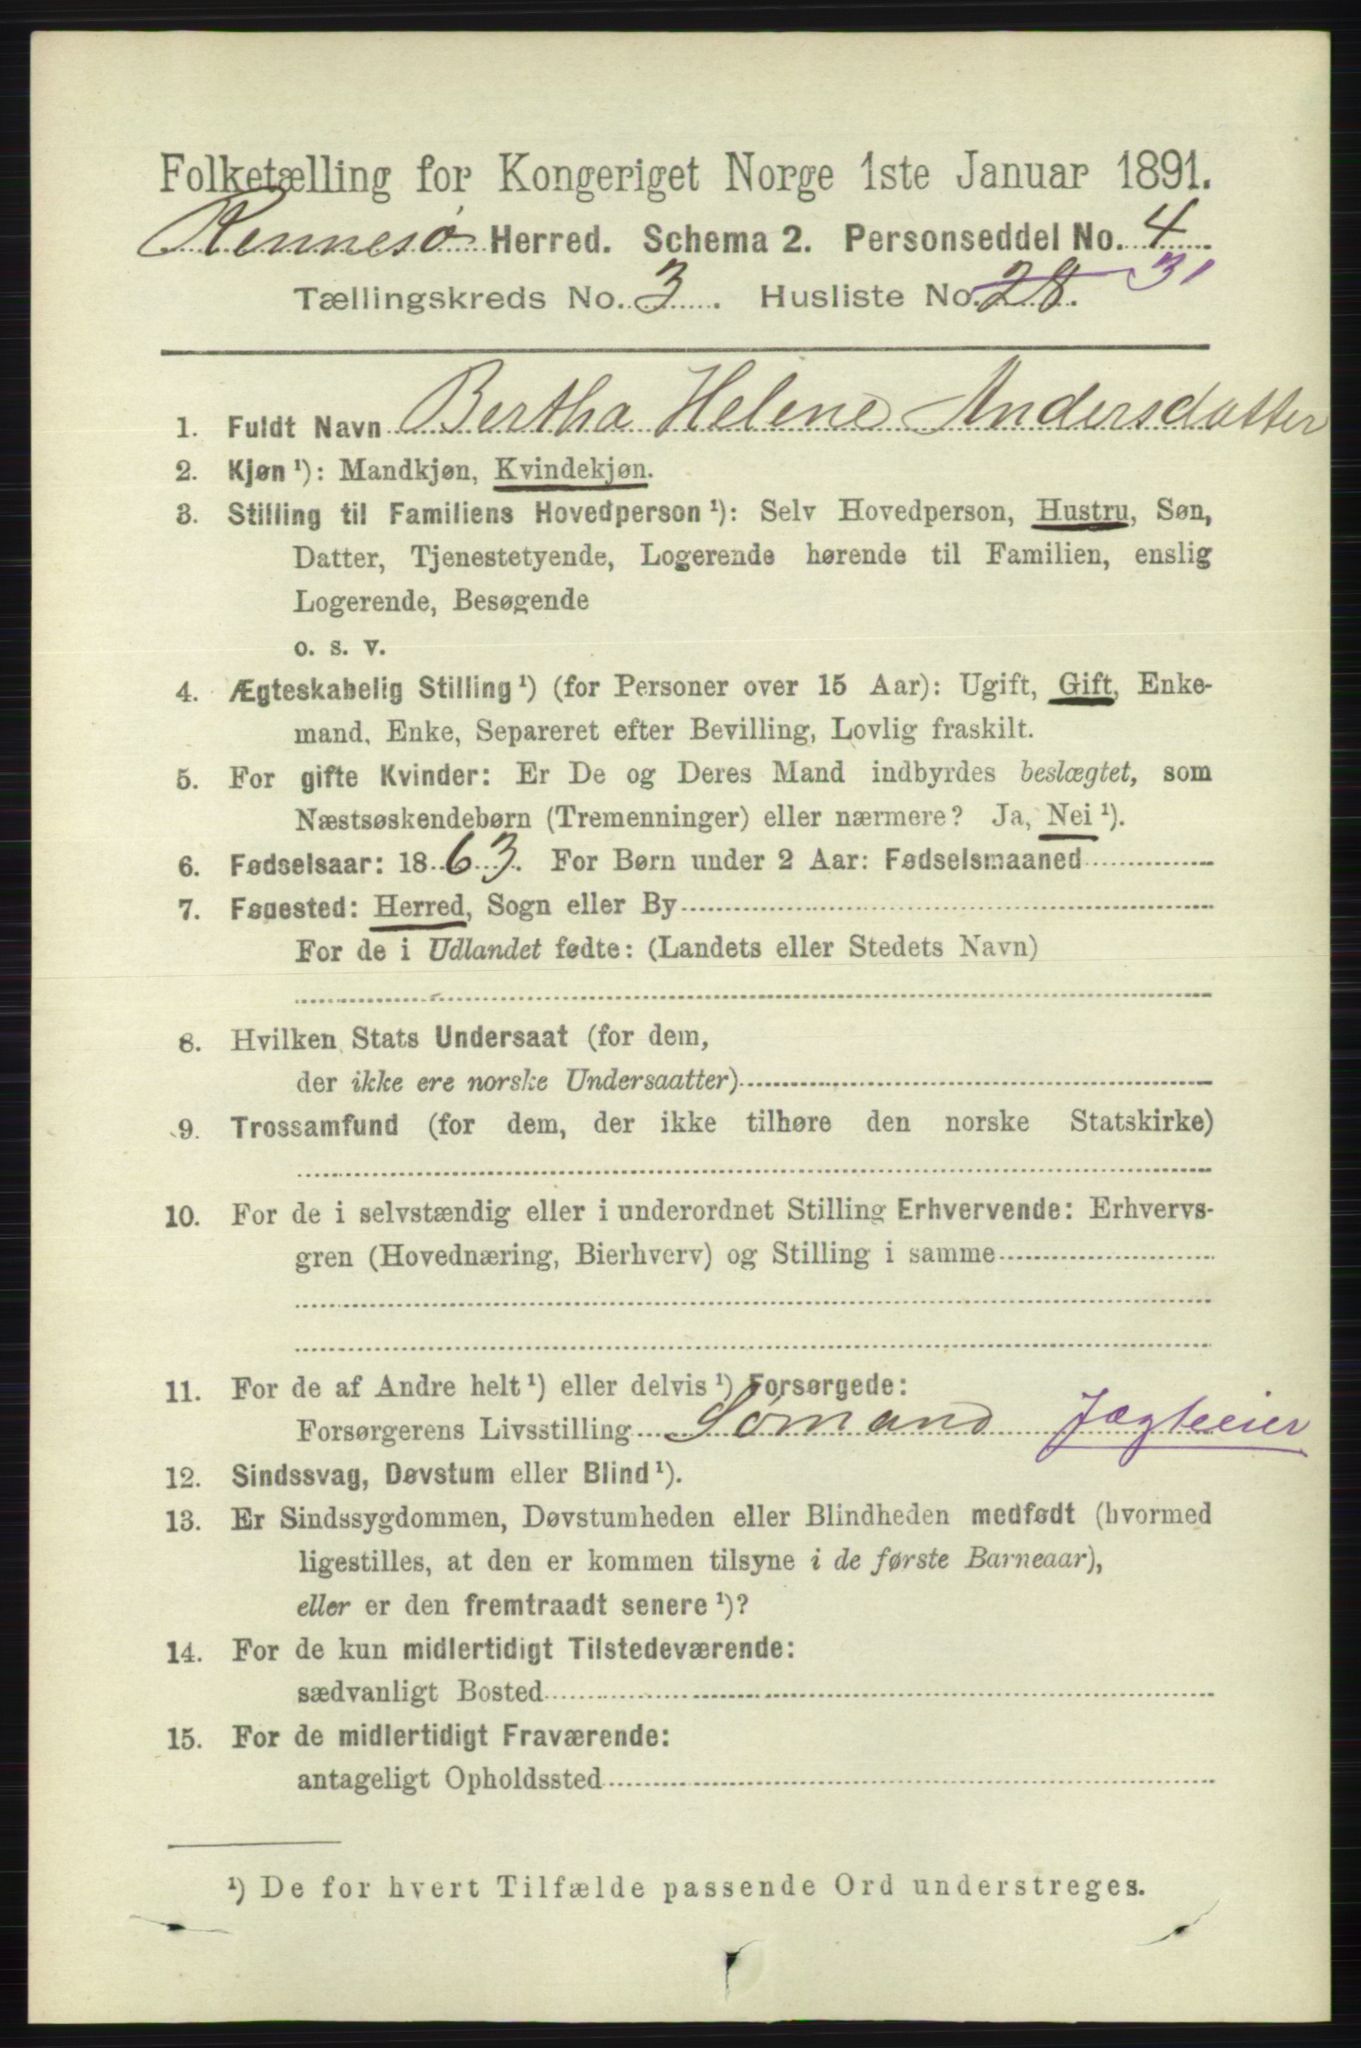 Folketælling for Kongeriget Norge 1ste Januar 1891.
Rennesø Herred. Schema 2. Personseddel No. 4
Tællingskreds No. 3. Husliste No. 28. 31
1. Fuldt Navn Bertha Helene Andersdatter
2. Kjøn ¹): Mandkjøn, Kvindekjøn.
3. Stilling til Familiens Hovedperson ¹): Selv Hovedperson, Hustru, Søn,
Datter, Tjenestetyende, Logerende hørende til Familien, enslig
Logerende, Besøgende
o. s. v.
4. Ægteskabelig Stilling ¹) (for Personer over 15 Aar): Ugift, Gift, Enke-
mand, Enke, Separeret efter Bevilling, Lovlig fraskilt.
5. For gifte Kvinder: Er De og Deres Mand indbyrdes beslægtet, som
Næstsøskendebørn (Tremenninger) eller nærmere? Ja, Nei ¹).
6. Fødselsaar: 1863. For Børn under 2 Aar: Fødselsmaaned
7. Føuested: Herred, Sogn eller By
For de i Udlandet fødte: (Landets eller Stedets Navn)
8. Hvilken Stats Undersaat (for dem,
der ikke ere norske Undersaatter)
9. Trossamfund (for dem, der ikke tilhøre den norske Statskirke)
10. For de i selvstændig eller i underordnet Stilling Erhvervende: Erhvervs-
gren (Hovednæring, Bierhverv) og Stilling i samme
11. For de af Andre helt ¹) eller delvis ¹) Forsørgede:
Forsørgerens Livsstilling Sømand Jægteeier
12. Sindssvag, Døvstum eller Blind ¹).
13. Er Sindssygdommen, Døvstumheden eller Blindheden medfødt (hvormed
ligestilles, at den er kommen tilsyne i de første Barneaar),
eller er den fremtraadt senere ¹)?
14. For de kun midlertidigt Tilstedeværende:
sædvanligt Bosted
15. For de midlertidigt Fraværende:
antageligt Opholdssted
¹) De for hvert Tilfælde passende Ord understreges.